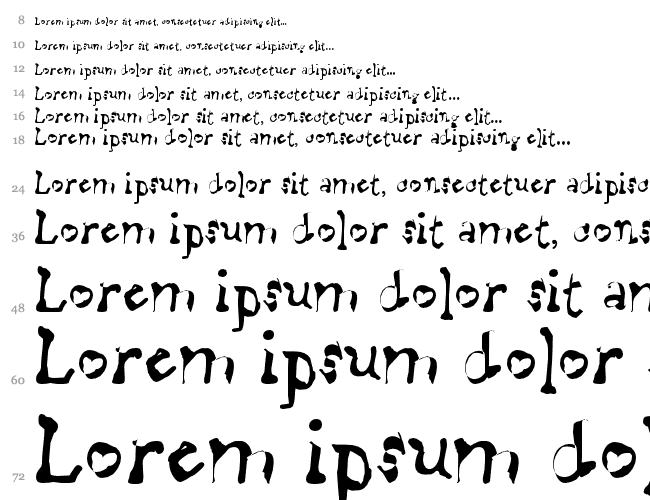 8 Lorem ipsum dolor sit amet, consectetuer adipiscing elit...
10 Lorem ipsum dolor sit amet, consectetuer adipiscing elit...
12 Lorem ipsum dolor sit amet, consectetuer adipiscing elit...
14 Lorem ipsum dolor sit amet, consectetuer adipiscing elit...
16 Lorem ipsum dolor sit amet, consectetuer adipiscing elit...
18 Lorem ipsum dolor sit amet, consectetuer adipiscing elit...
24 Lorem ipsum dolor sit amet, consectetuer adipisc
36 Lorem ipsum dolor sit amet, cons
48 Lorem ipsum dolor sit am
60 Lorem ipsum dolor
72 Lorem ipsum dol